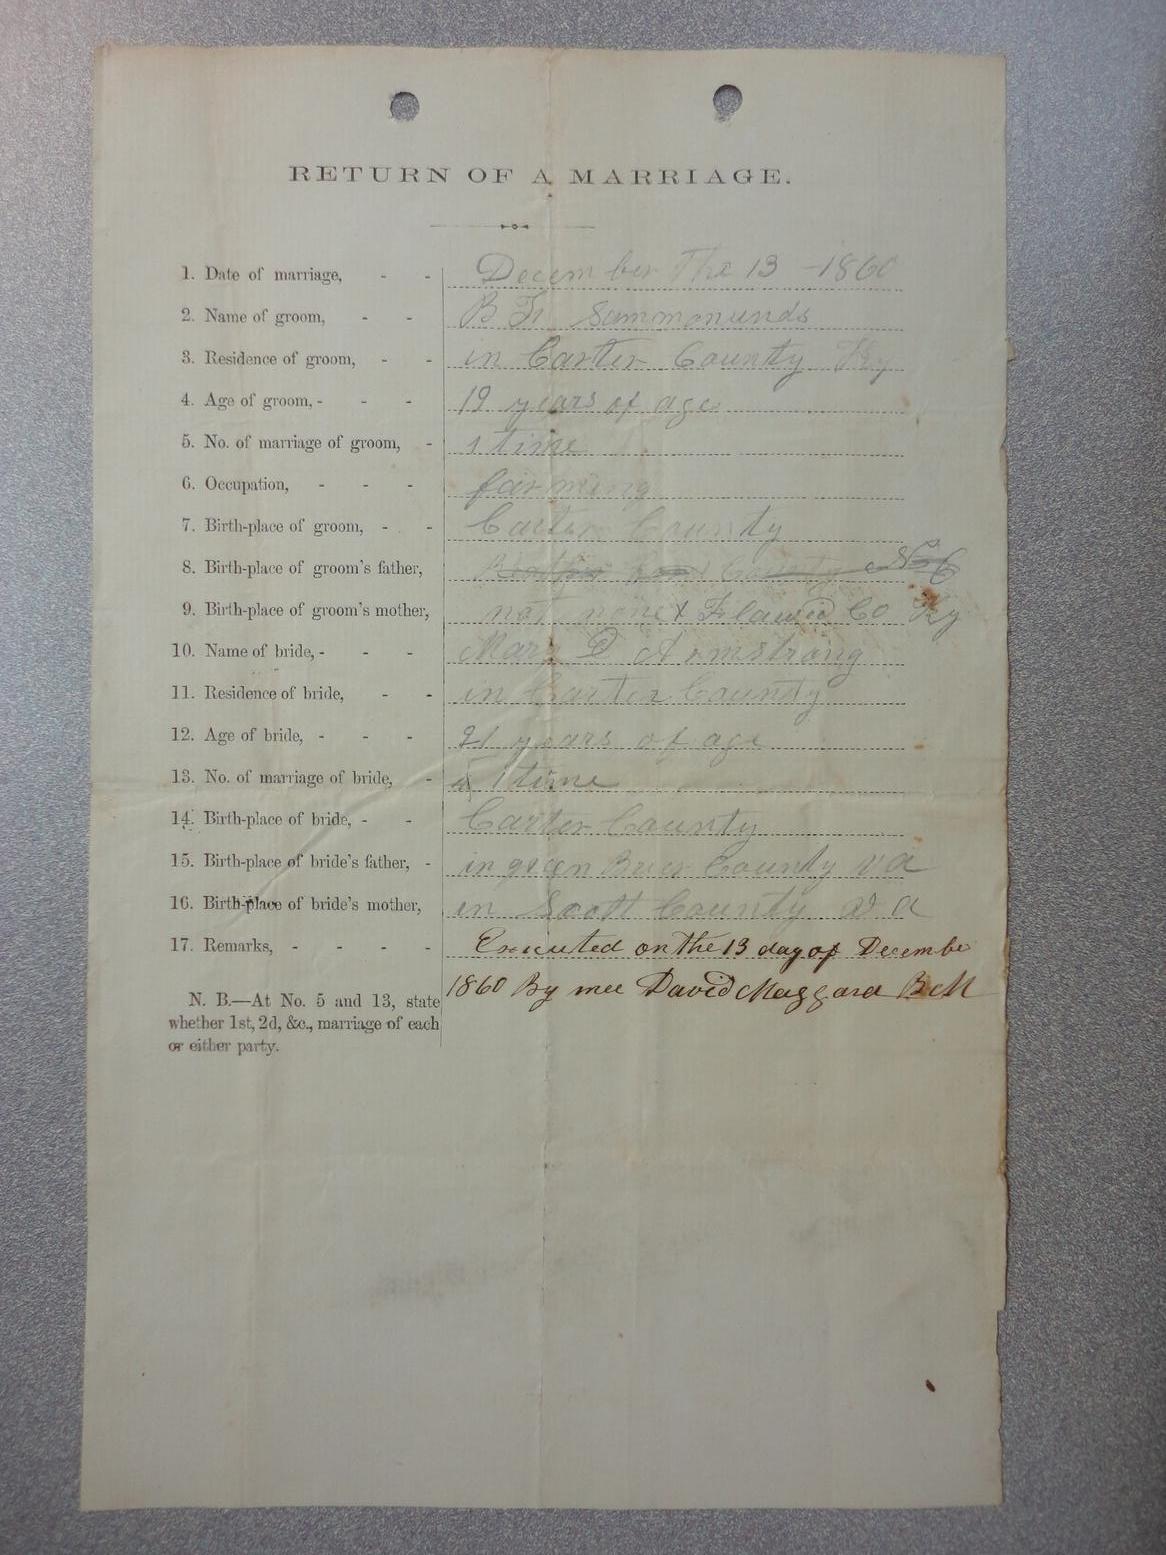 RETURN OF A MARRIAGE.
1. Date of marriage, - - December The 13 - 1860
2. Name of groom, - - B F Sammonunds
3. Residence of groom, - - in Carter County Ky
4. Age of groom, - - - 19 years of age
5. No. of marriage of groom, - 1 time
6. Occupation, - - - farming
7. Birth-place of groom, - - Carter County
8. Birth-place of groom's father, County
9. Birth-place of groom's mother, not none x Flawid Co Ky
10. Name of bride, - - - Mary D Armstrong
11. Residence of bride, - - in Carter County
12. Age of bride, - - - 21 years of age
13. No. of marriage of bride, - 1 time
14. Birth-place of bride, - - Carter County
15. Birth-place of bride's father, - in green Brier County va
16. Birth-place of bride's mother, in Scott County va
17. Remarks, - - - - Executed on the 13 day of Decembe
1860 By mee David Maggard
N. B.—At No. 5 and 13, state
whether 1st, 2d, &c., marriage of each
or either party.